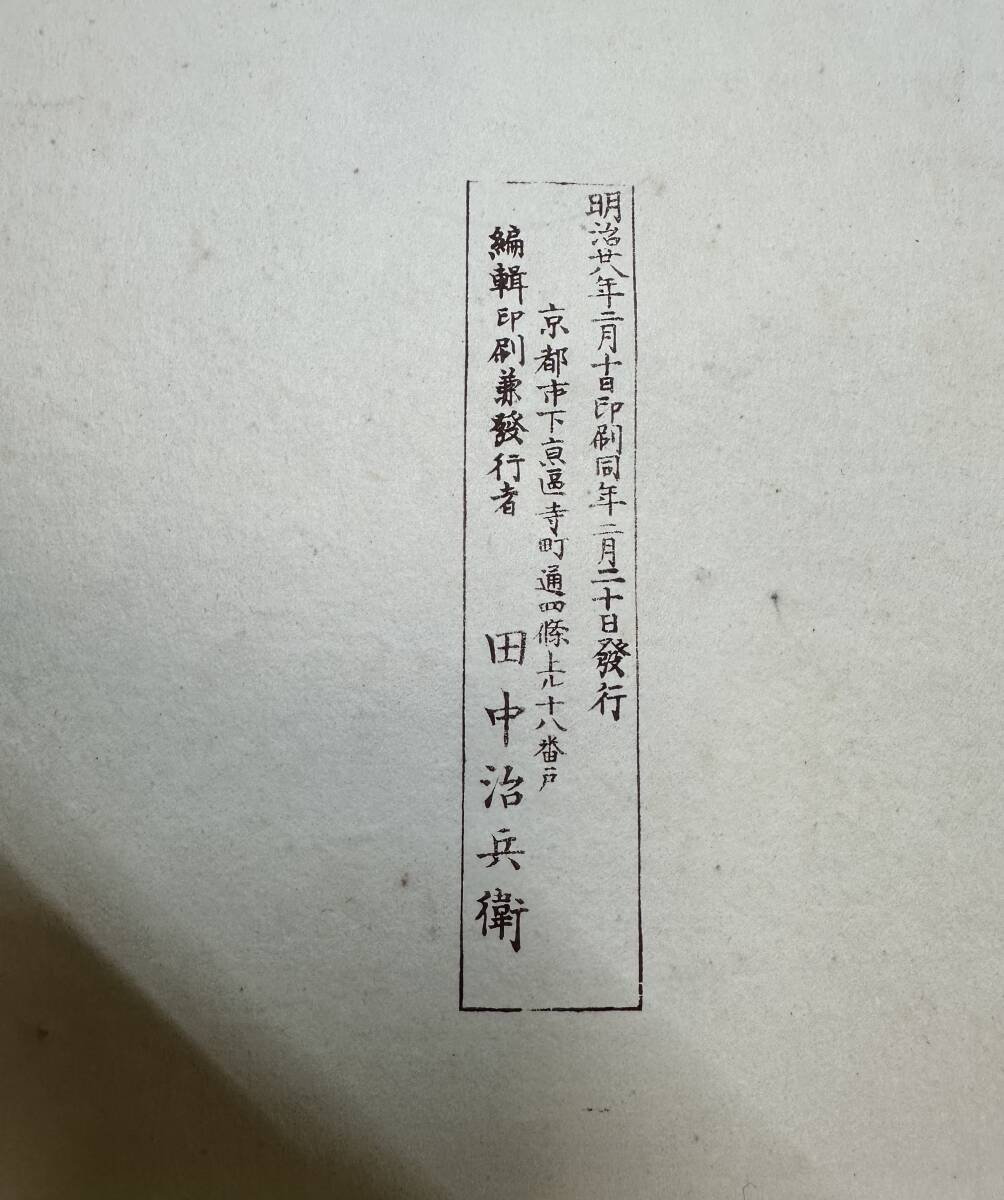 明治廿八年二月十日印刷同年二月二十日發行
京都市下京區寺町通四條上ル十八番戸
編輯印刷兼發行者　田中治兵衛